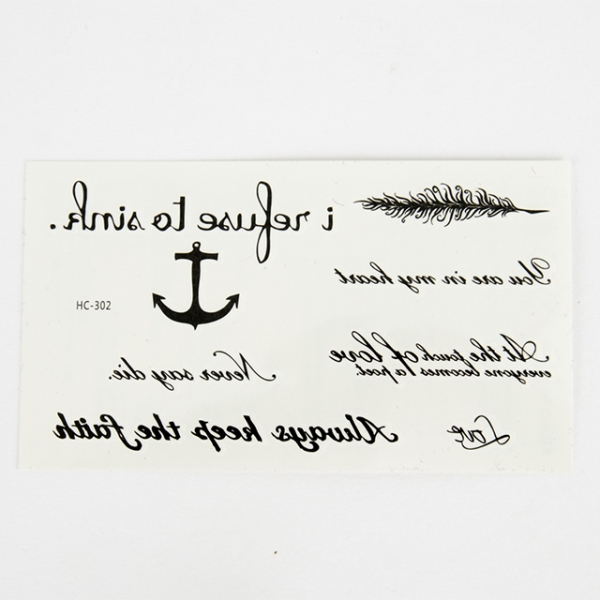 i refuse to sink.
HC-302
You are in my heart
At the touch of love
everyone becomes a poet.
Never say die.
Always keep the faith
Love